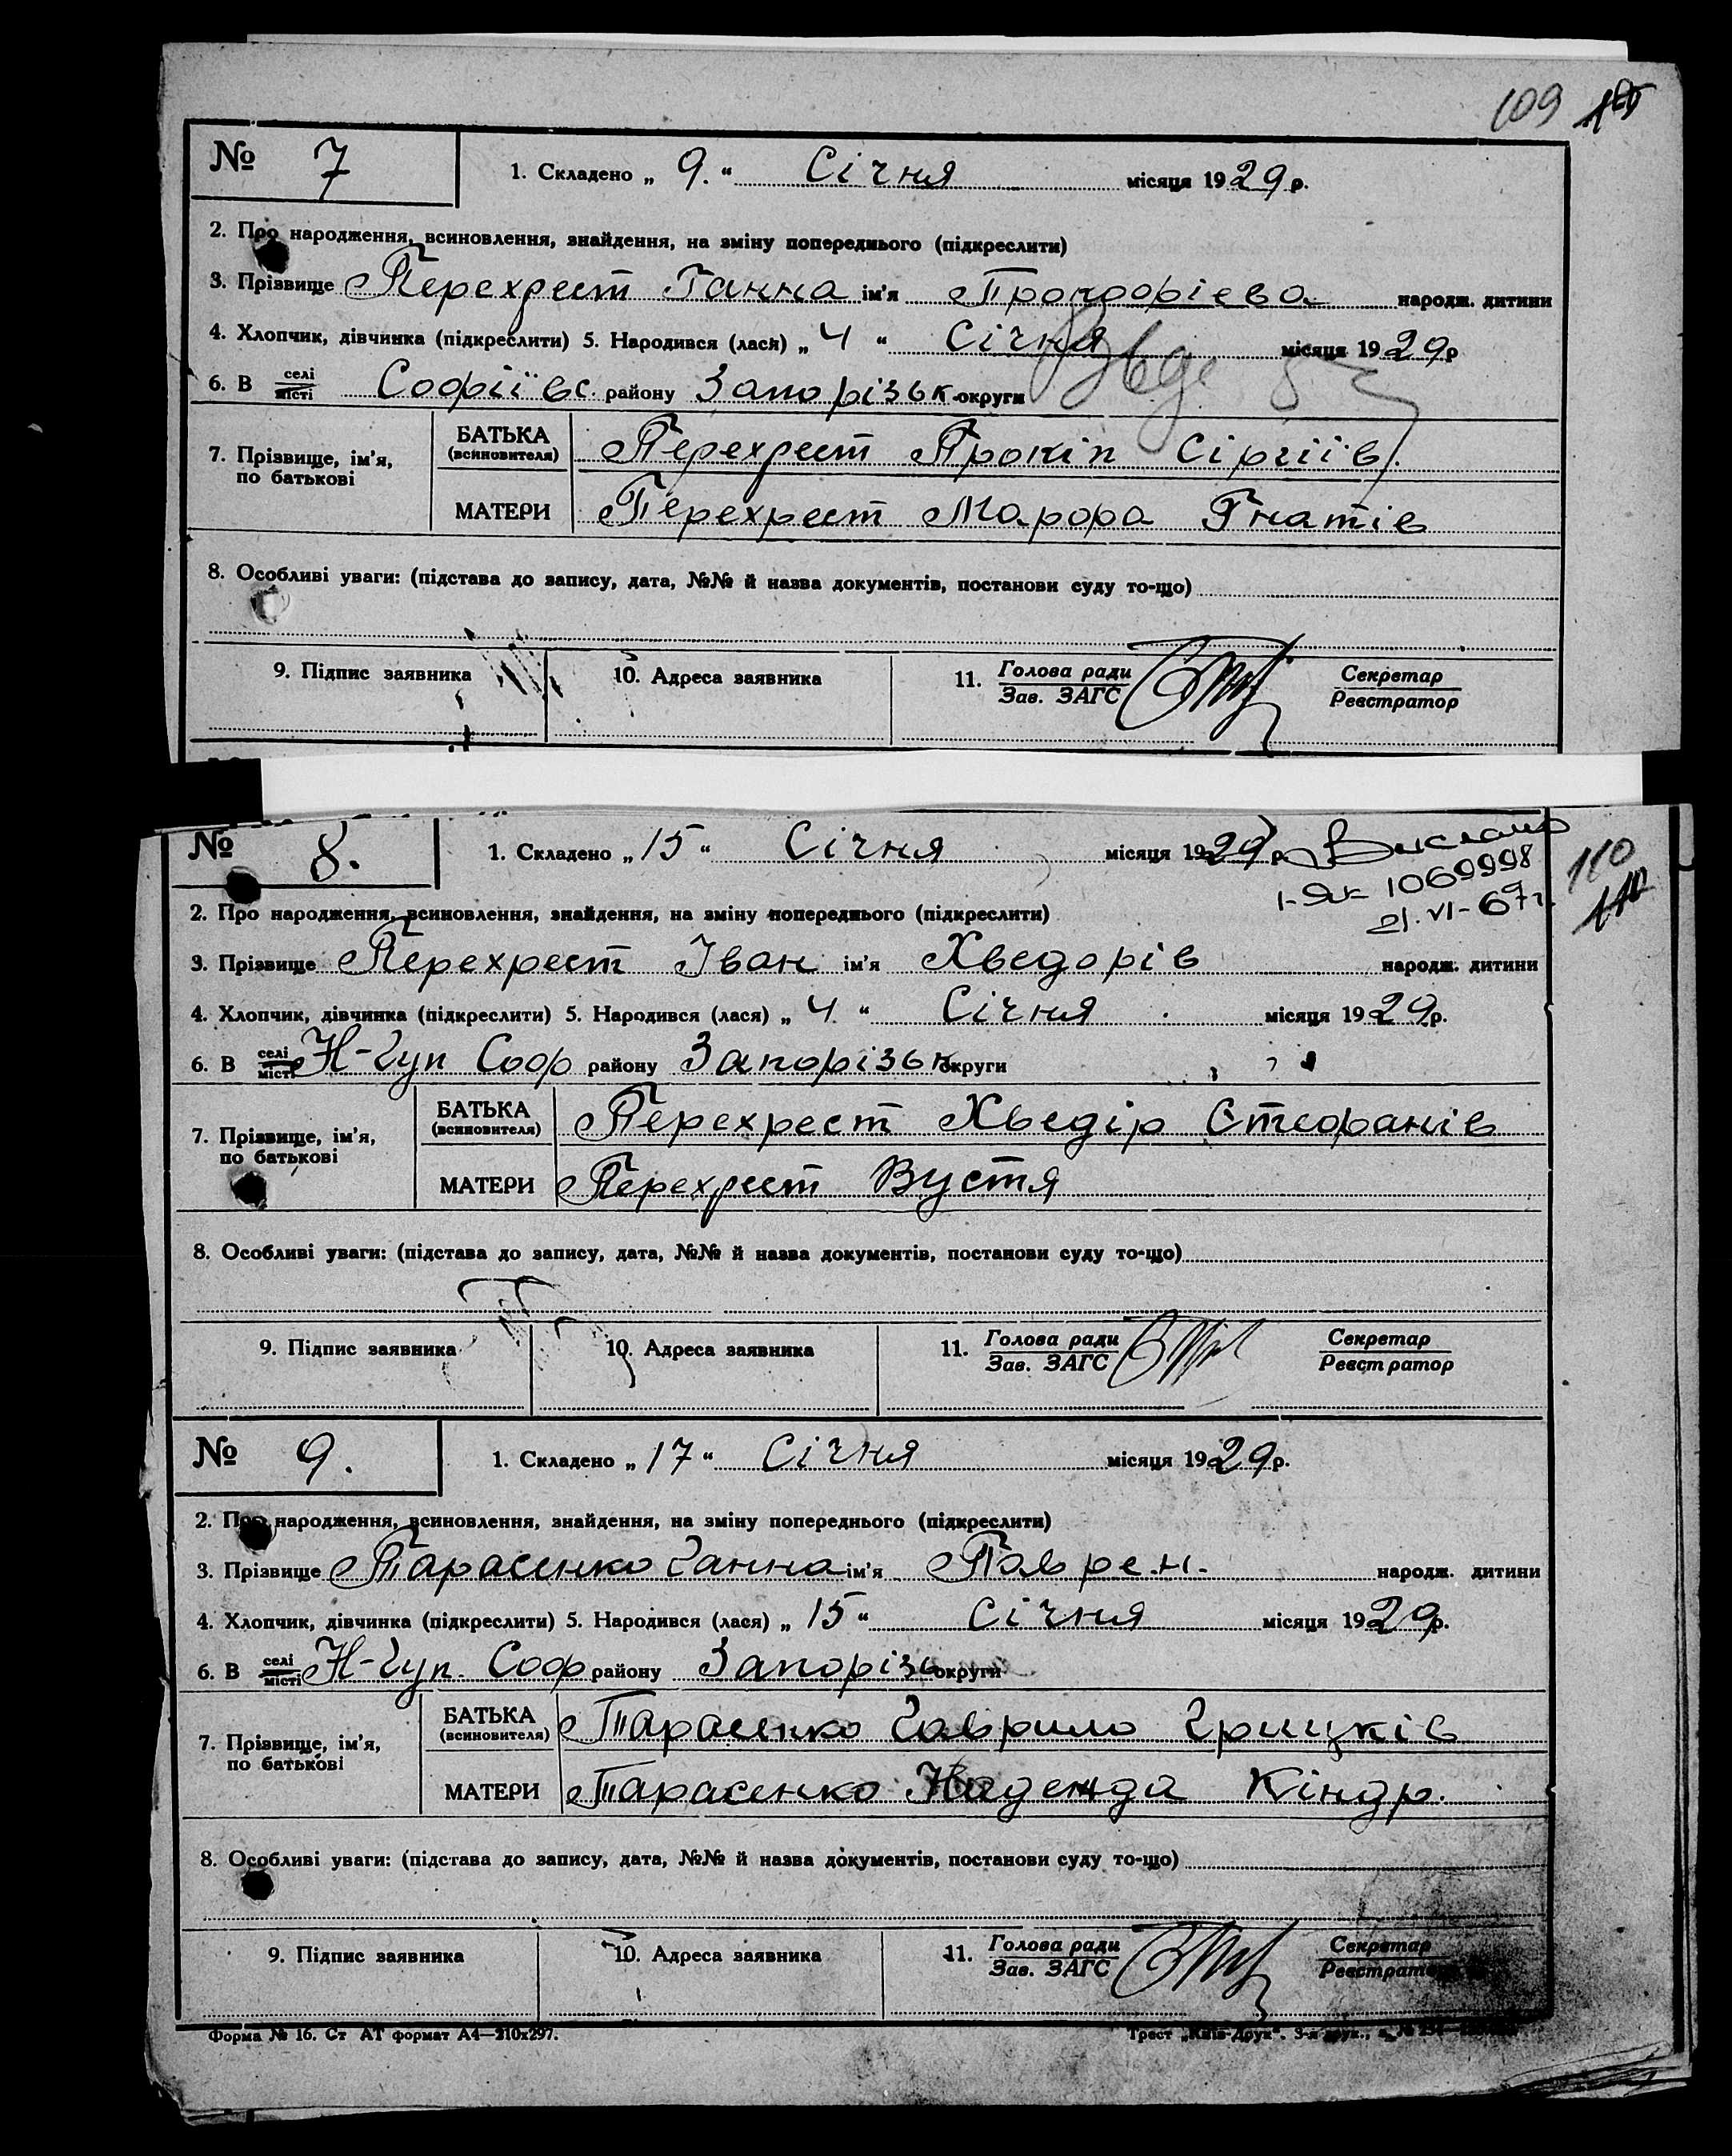 109
№ 7
1. Складено „ 9. “ Січня місяця 1929 р.
2. Про народження, всиновлення, знайдення, на зміну попереднього (підкреслити)
3. Прізвище Перехрест Ганна ім'я Прокофіева народж. дитини
4. Хлопчик, дівчинка (підкреслити) 5. Народився (лася) „ 4 “ Січня місяця 1929р
6. В селі місті Софіївс. району Запорізьк. округи
7. Прізвище, ім'я, по батькові
БАТЬКА (всиновителя) Перехрест Прокіп Сіргіїв.
МАТЕРИ Перехрест Марфа Гнатів
8. Особливі уваги: (підстава до запису, дата, №№ й назва документів, постанови суду то-що)
9. Підпис заявника 10. Адреса заявника 11. Голова ради Зав. ЗАГС Секретар Реєстратор
№ 8.
1. Складено „ 15 “ Січня місяця 1929 р.
1069998
21. VI-67г.
110
2. Про народження, всиновлення, знайдення, на зміну попереднього (підкреслити)
3. Прізвище Перехрест Іван ім'я Хведорів народж. дитини
4. Хлопчик, дівчинка (підкреслити) 5. Народився (лася) „ 4 “ Січня місяця 1929р.
6. В селі місті Н-Гуп Соф району Запорізьк округи
7. Прізвище, ім'я, по батькові
БАТЬКА (всиновителя) Перехрест Хведір Стефанів
МАТЕРИ Перехрест Вустя
8. Особливі уваги: (підстава до запису, дата, №№ й назва документів, постанови суду то-що)
9. Підпис заявника 10. Адреса заявника 11. Голова ради Зав. ЗАГС Секретар Реєстратор
№ 9.
1. Складено „ 17 “ Січня місяця 1929р.
2. Про народження, всиновлення, знайдення, на зміну попереднього (підкреслити)
3. Прізвище Тарасенко Ганна ім'я народж. дитини
4. Хлопчик, дівчинка (підкреслити) 5. Народився (лася) „ 15 “ Січня місяця 1929р.
6. В селі місті Н-Гуп. Соф району Запорізь округи
7. Прізвище, ім'я, по батькові
БАТЬКА (всиновителя) Тарасенко Гаврило Грицків
МАТЕРИ Тарасенко Надежда Кіндр.
8. Особливі уваги: (підстава до запису, дата, №№ й назва документів, постанови суду то-що)
9. Підпис заявника 10. Адреса заявника 11. Голова ради Зав. ЗАГС Секретар Реєстратор
Форма № 16. Ст АТ формат А4—210x297. Трест „Київ-Друк“. 3-я друк.,